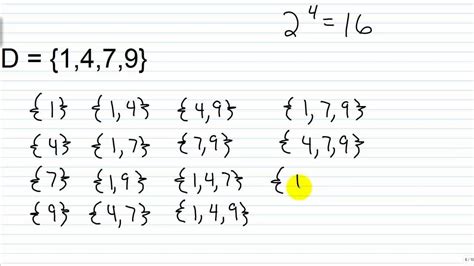 2^4 = 16
D = {1,4,7,9}
{1} {1,4} {4,9} {1,7,9}
{4} {1,7} {7,9} {4,7,9}
{7} {1,9} {1,4,7} {1
{9} {4,7} {1,4,9}